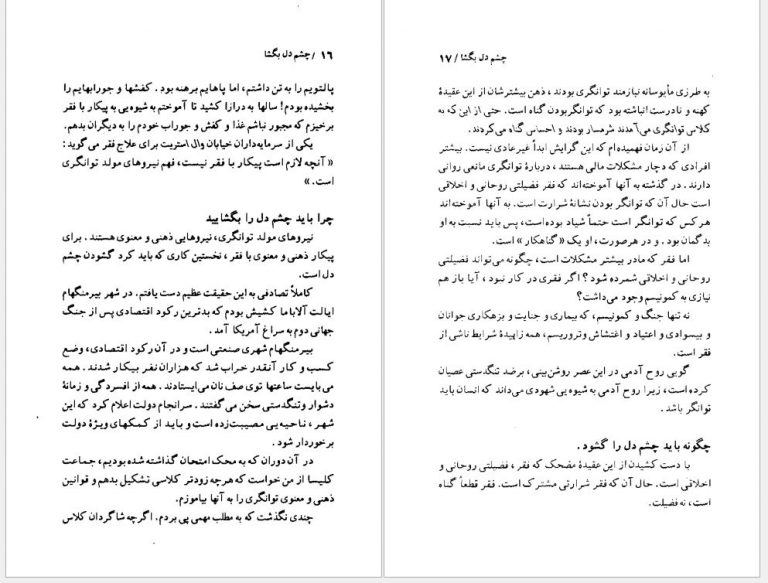 ۱۶ / چشم دل بگشا
پالتویم را به تن داشتم، اما پاهایم برهنه بود. کفشها و جورابهایم را
بخشیده بودم! سالها به درازا کشید تا آموختم به شیوه‌یی به پیکار با فقر
برخیزم که مجبور نباشم غذا و کفش و جوراب خودم را به دیگران بدهم.
یکی از سرمایه‌داران خیابان وال استریت برای علاج فقر می‌گوید:
« آنچه لازم است پیکار با فقر نیست، فهم نیروهای مولد توانگری
است. »
چرا باید چشم دل را بگشایید
نیروهای مولد توانگری، نیروهایی ذهنی و معنوی هستند. برای
پیکار ذهنی و معنوی با فقر، نخستین کاری که باید کرد گشودن چشم
دل است.
کاملاً تصادفی به این حقیقت عظیم دست یافتم. در شهر بیرمنگهام
ایالت آلاباما کشیش بودم که بدترین رکود اقتصادی پس از جنگ
جهانی دوم به سراغ آمریکا آمد.
بیرمنگهام شهری صنعتی است و در آن رکود اقتصادی، وضع
کسب و کار آنقدر خراب شد که هزاران نفر بیکار شدند. همه
می‌بایست ساعتها توی صف نان می‌ایستادند. همه از افسردگی و زمانهٔ
دشوار و تنگدستی سخن می‌گفتند. سرانجام دولت اعلام کرد که این
شهر، ناحیه‌یی مصیبت‌زده است و باید از کمکهای ویژهٔ دولت
برخوردار شود.
در آن دوران که به محک امتحان گذاشته شده بودیم، جماعت
کلیسا از من خواست که هرچه زودتر کلاسی تشکیل بدهم و قوانین
ذهنی و معنوی توانگری را به آنها بیاموزم.
چندی نگذشت که به مطلب مهمی پی بردم. اگرچه شاگردان کلاس
چشم دل بگشا / ۱۷
به طرزی مأیوسانه نیازمند توانگری بودند، ذهن بیشترشان از این عقیدهٔ
کهنه و نادرست انباشته بود که توانگر بودن گناه است. حتی از این که به
کلاس توانگری می‌آمدند شرمسار بودند و احساس گناه می‌کردند.
از آن زمان فهمیده‌ام که این گرایش ابداً غیرعادی نیست. بیشتر
افرادی که دچار مشکلات مالی هستند، دربارهٔ توانگری مانعی روانی
دارند. در گذشته به آنها آموخته‌اند که فقر فضیلتی روحانی و اخلاقی
است حال آن که توانگر بودن نشانهٔ شرارت است. به آنها آموخته‌اند
هرکس که توانگر است حتماً شیاد بوده‌است، پس باید نسبت به او
بدگمان بود. و در هرصورت، او یک «گناهکار» است.
اما فقر که مادر بیشتر مشکلات است، چگونه می‌تواند فضیلتی
روحانی و اخلاقی شمرده شود؟ اگر فقری در کار نبود، آیا باز هم
نیازی به کمونیسم وجود می‌داشت؟
نه تنها جنگ و کمونیسم، که بیماری و جنایت و بزهکاری جوانان
و بیسوادی و اعتیاد و اغتشاش و تروریسم، همه زاییدهٔ شرایط ناشی از
فقر است.
گویی روح آدمی در این عصر روشن‌بینی، برضد تنگدستی عصیان
کرده است، زیرا روح آدمی به شیوه‌یی شهودی می‌داند که انسان باید
توانگر باشد.
چگونه باید چشم دل را گشود.
با دست کشیدن از این عقیدهٔ مضحک که فقر، فضیلتی روحانی و
اخلاقی است. حال آن که فقر شرارتی مشترک است. فقر قطعاً گناه
است، نه فضیلت.